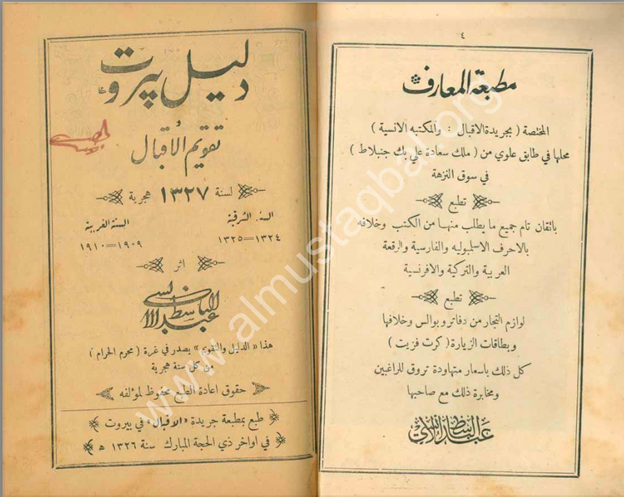 ٤
مطبعة المعارف
المختصة ( بجريدة الاقبال : والمكتبه الانسية )
محلها في طابق علوي من ( ملك سعادة علي بك جنبلاط )
في سوق النزهة
تطبع
باتقان تام جميع ما يطلب منها من الكتب وخلافه
بالاحرف الاسلامبوليه والفارسية والرقعة
العربية والتركية والافرنسية
تطبع
لوازم التجار من دفاتر وبوالس وخلافها
وبطاقات الزيارة ( كرت فزيت )
كل ذلك باسعار متهاودة تروق للراغبين
ومخابرة ذلك مع صاحبها
عبد الباسط الانسي
دليل بيروت
تقويم الاقبال
لسنة ١٣٢٧ هجرية
السنة الشرقية
١٣٢٤=١٣٢٥
السنة الغربية
١٩٠٩=١٩١٠
اثر
عبد الباسط الانسي
هذا « الدليل والتقويم » يصدر في غرة ( محرم الحرام )
من كل سنة هجرية
حقوق اعادة الطبع محفوظ لمؤلفه
طبع بمطبعة جريدة « الاقبال » في بيروت
في اواخر ذي الحجة المبارك سنة ١٣٢٦ ه
www.almustaqbal.org